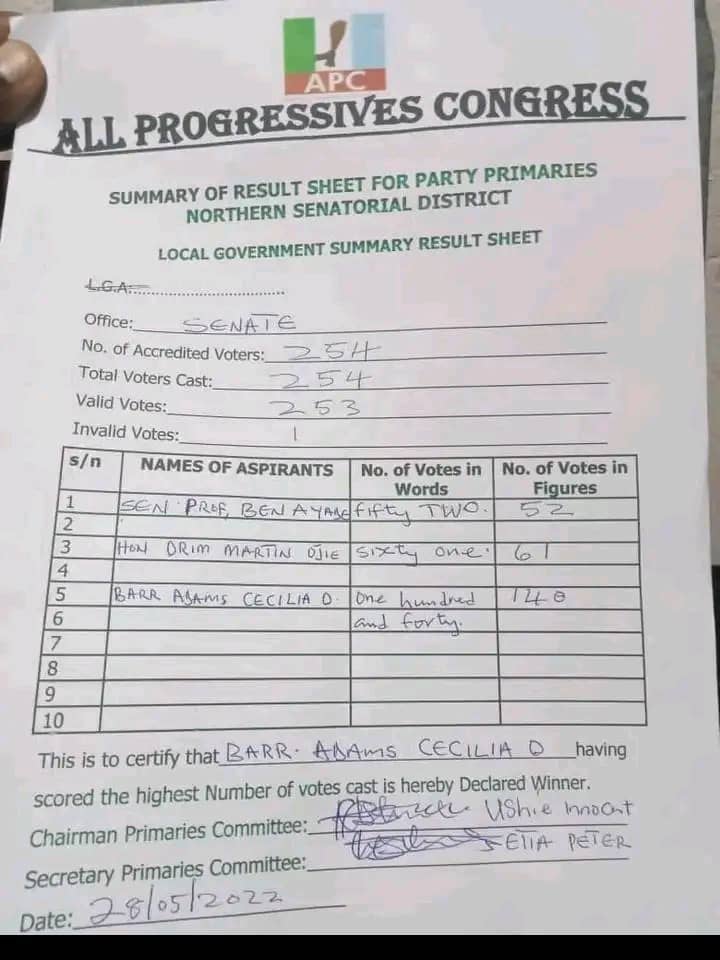 APC
ALL PROGRESSIVES CONGRESS
SUMMARY OF RESULT SHEET FOR PARTY PRIMARIES
NORTHERN SENATORIAL DISTRICT
LOCAL GOVERNMENT SUMMARY RESULT SHEET
L.G.A:
Office: SENATE
No. of Accredited Voters: 254
Total Voters Cast: 254
Valid Votes: 253
Invalid Votes: 1
s/n NAMES OF ASPIRANTS No. of Votes in Words No. of Votes in Figures
1 SEN PROF, BEN AYADE fifty TWO. 52
2
3 HON ORIM MARTIN OJIE sixty one. 61
4
5 BARR ADAMS CECILIA O. One hundred 140
6 and forty.
7
8
9
10
This is to certify that BARR. ADAMS CECILIA O having
scored the highest Number of votes cast is hereby Declared Winner.
Chairman Primaries Committee: Ushie Innocent
Secretary Primaries Committee: ETTA PETER
Date: 28/05/2022